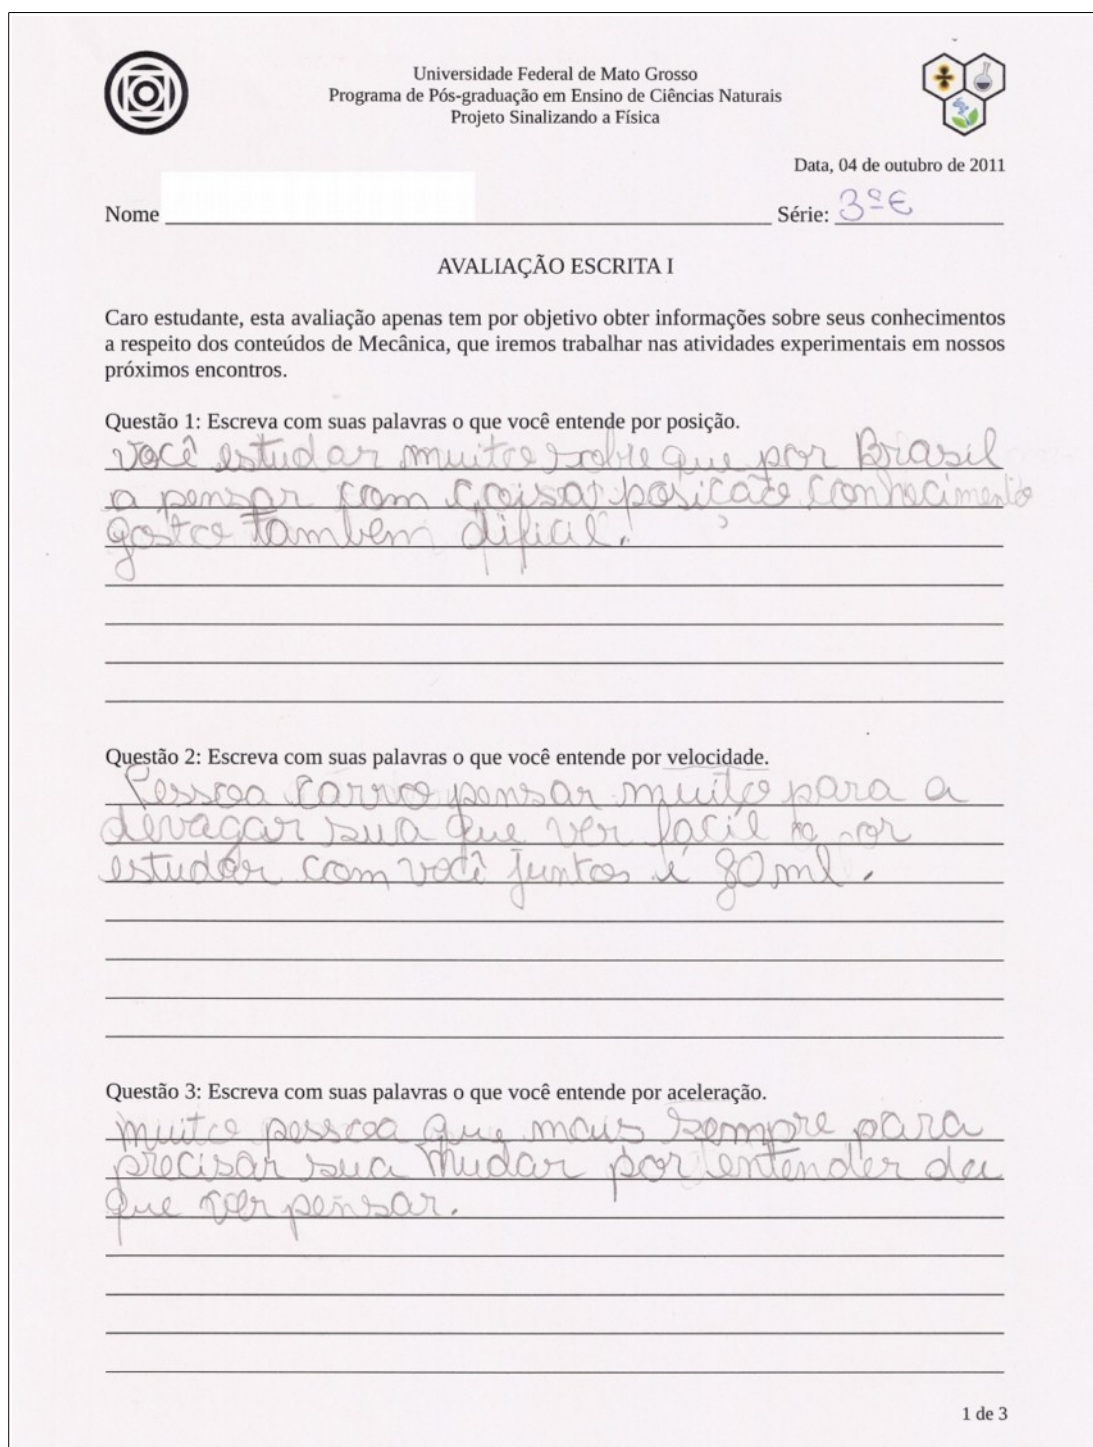 Universidade Federal de Mato Grosso
Programa de Pós-graduação em Ensino de Ciências Naturais
Projeto Sinalizando a Física
Data, 04 de outubro de 2011
Nome Série: 3º E
AVALIAÇÃO ESCRITA I
Caro estudante, esta avaliação apenas tem por objetivo obter informações sobre seus conhecimentos
a respeito dos conteúdos de Mecânica, que iremos trabalhar nas atividades experimentais em nossos
próximos encontros.
Questão 1: Escreva com suas palavras o que você entende por posição.
você estudar muito sobre que por Brasil
a pensar com coisar posicão conhecimento
gosto também dificil.
Questão 2: Escreva com suas palavras o que você entende por velocidade.
Pessoa carro pensar muito para a
devagar sua que ver facil
estudar com você juntos é 80ml.
Questão 3: Escreva com suas palavras o que você entende por aceleração.
muito pessoa que mais sempre para
precisar sua mudar por entender
que ver pensar.
1 de 3